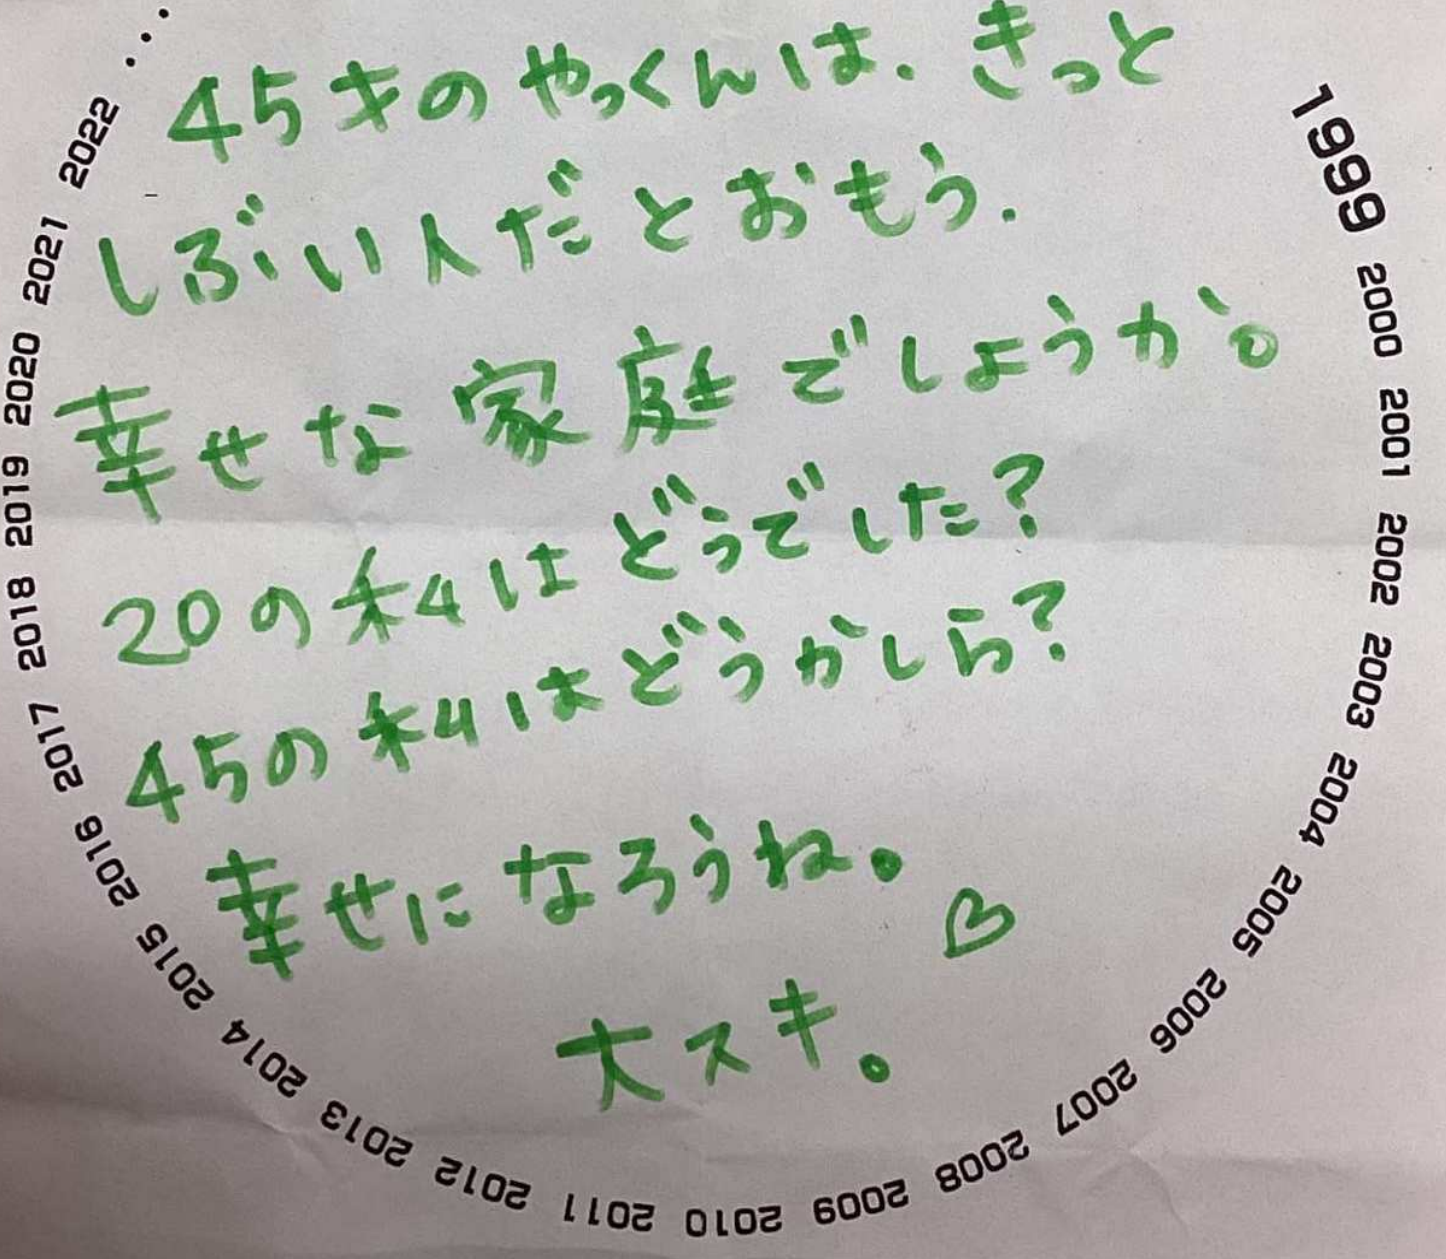 45才のやっくんは、きっと
しぶい人だとおもう.
幸せな家庭でしょうか。
20の私はどうでした?
45の私はどうかしら?
幸せになろうね。
♡
大スキ。
1999 2000 2001 2002 2003 2004 2005 2006 2007 2008 2009 2010 2011 2012 2013 2014 2015 2016 2017 2018 2019 2020 2021 2022 ...